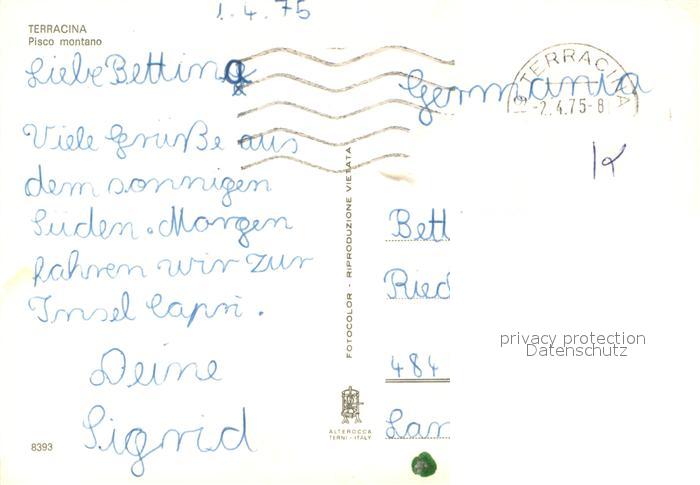 1.4.75
TERRACINA
Pisco montano
Liebe Bettina
Viele Grüße aus
dem sonnigen
Süden. Morgen
fahren wir zur
Insel Capri.
Deine
Sigrid
8393
FOTOCOLOR - RIPRODUZIONE VIETATA
ALTEROCCA
TERNI - ITALY
TERRACINA
-2.4.75-8
Germania
Bett
Ried
484
Lan
privacy protection
Datenschutz